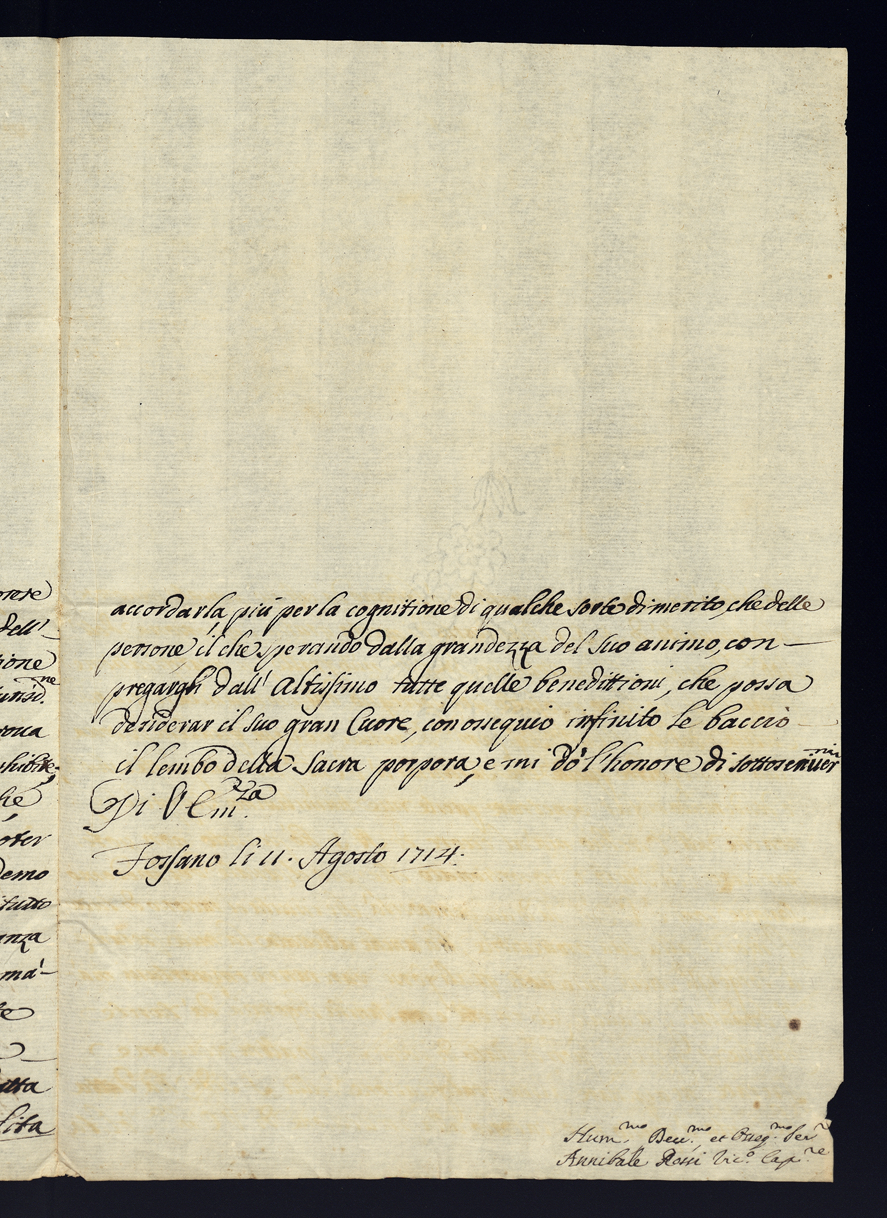 accordarla, più per la cognitione di qualche sorte di merito, che delle
persone, il che sperando dalla grandezza del suo animo, con
pregargli dall' Altissimo tutte quelle benedittioni, che possa
desiderar il suo gran Cuore, con ossequio infinito le baccio
il lembo della Sacra porpora, e mi dò l'honore di
Di V. Em.za
Fossano li 11. Agosto 1714.
Hum.mo Deu.mo, et Osseq.mo Ser.r
Annibale Rossi Vic.o Cap.re